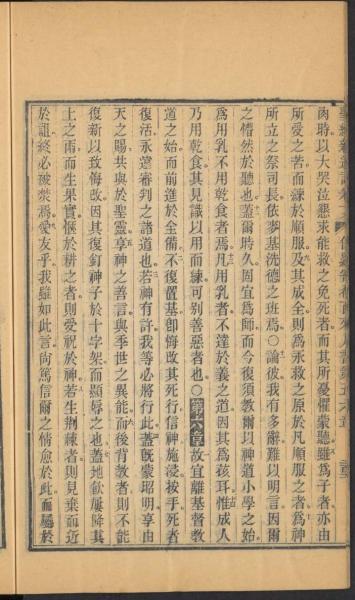 肉時以大哭泣懇求能救之免死者而其所憂懼蒙聽雖爲子者亦由
所愛之苦而練於順服及其成全則爲永救之原於凡順服之者爲神
所立之祭司長依麥基洗德之班焉○論彼我有多辭難以明言因爾
之惛然於聽也蓋爾時久固宜爲師而今復須教爾以神道小學之始
爲用乳不用乾食者焉凡用乳者不達於義之道因其爲孩耳惟成人
乃用乾食其見識以用而練可別善惡者也○第六章故宜離基督教
道之始而前進於全備不復置基卽悔改其死行信神施浸按手死者
復活永遠審判之諸道也若神有許我等必將行此蓋旣蒙昭明享由
天之賜共與於聖靈享神之善言與季世之異能而後背教者則不能
復新以致悔改因其復釘神子於十字架而顯辱之也蓋地歙屢降其
上之雨而生果實愜於耕之者則受祝於神若生荆練者則見棄而近
於詛終必被焚焉愛友乎我雖如此言尚篤信爾之情愈於此而屬於